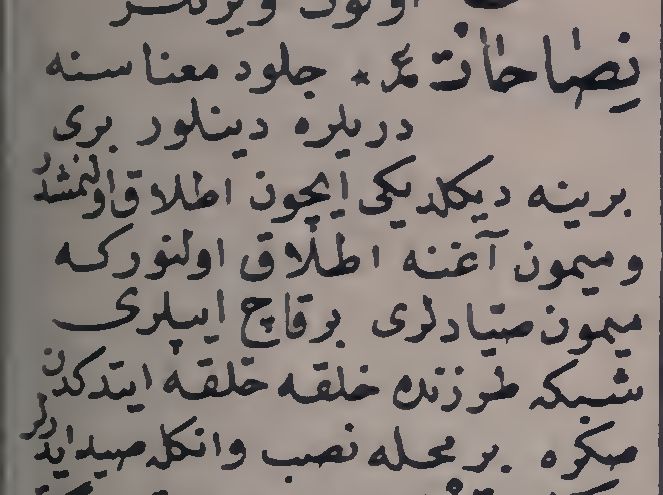 اولوب ويرلر
نصاحات ع * جلود معناسنه
دريلره دينلور برى
برينه ديكلديكى ايچون اطلاق اولنمشدر
وميمون آغنه اطلاق اولنوركه
ميمون صيادلرى برقاچ ايپلرى
شبكه طرزنده خلقه خلقه ايتدكدن
صكره بر محله نصب وانكله صيد ايدرلر